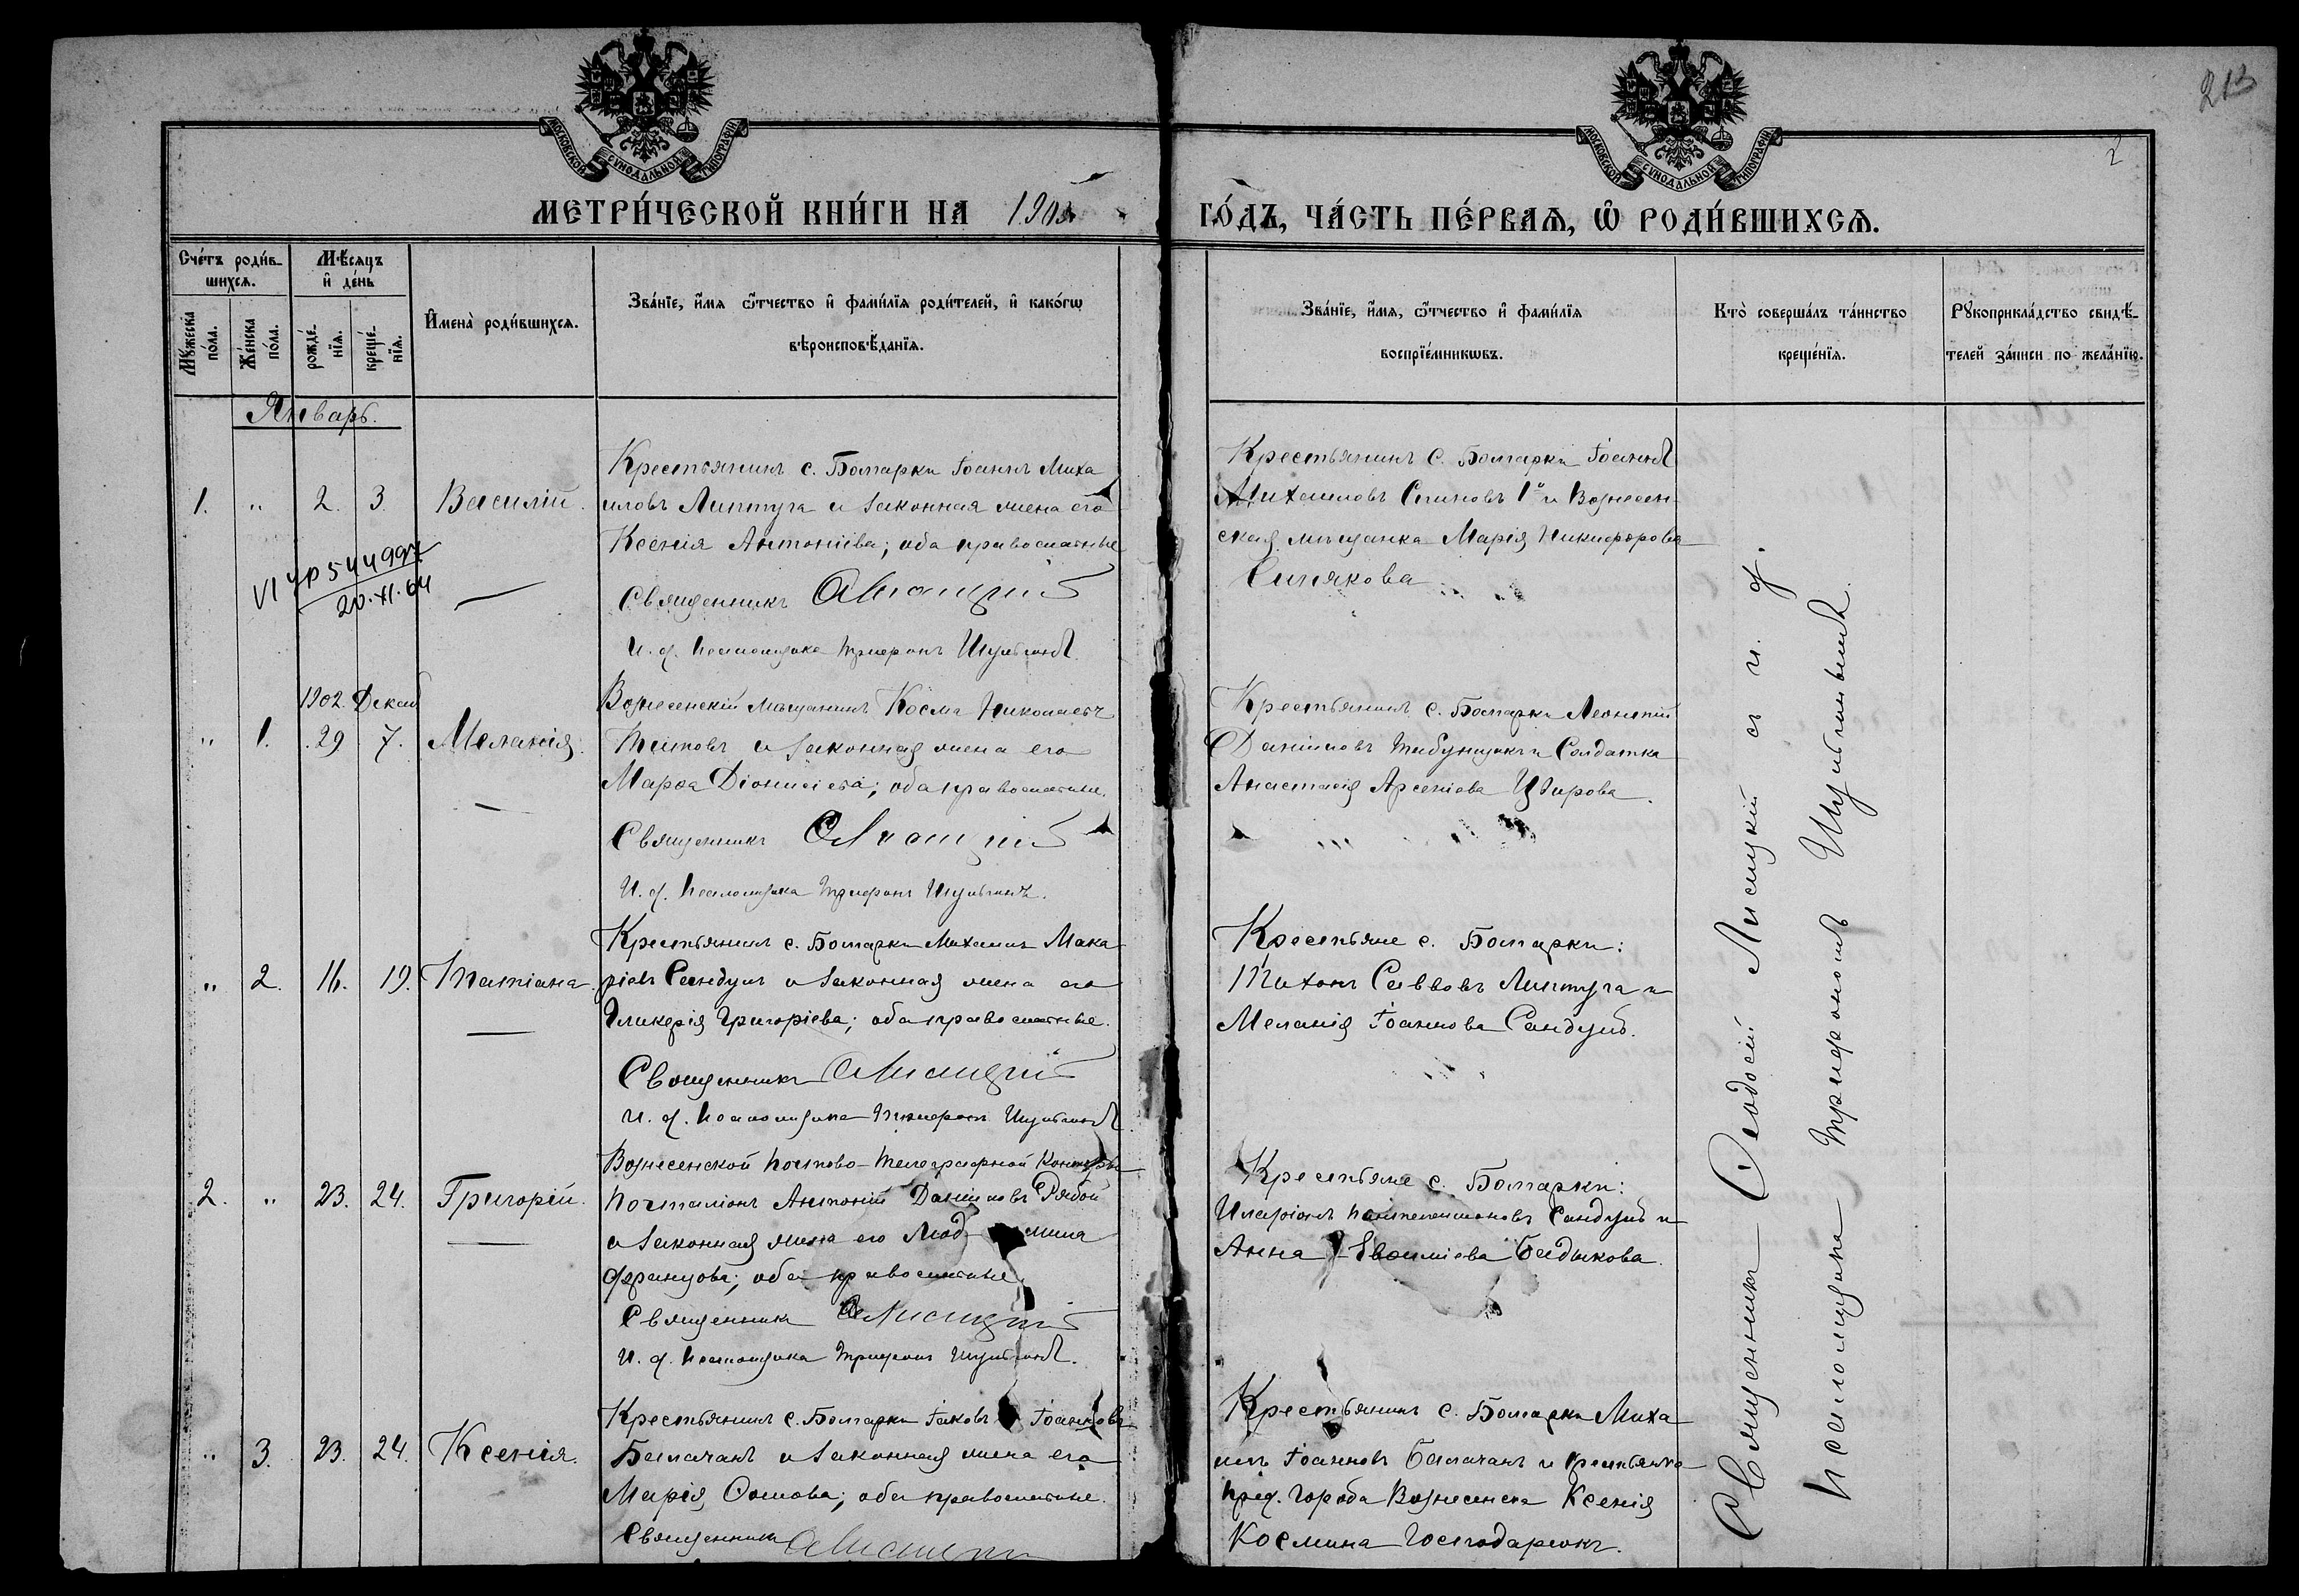 213
2
МОСКОВСКОЙ СѴНОДАЛЬНОЙ ТИПОГРАФІИ
МОСКОВСКОЙ СѴНОДАЛЬНОЙ ТИПОГРАФІИ
МЕТРИ́ЧЕСКОЙ КНИ́ГИ НА 1903
ГО́ДЪ, ЧА́СТЬ ПЕ́РВАѦ, Ѿ РОДИ́ВШИХСѦ.
Сче́тъ роди́в-
шихсѧ.
Мꙋ́жеска по́ла.
Же́нска по́ла.
Мѣ́сѧцъ
и҆ де́нь
рожде́-
нїѧ.
креще́-
нїѧ.
И҆мена̀ роди́вшихсѧ.
Зва́нїе, и҆́мѧ ѻ҆́тчество и҆ фами́лїѧ роди́телей, и҆ како́гѡ
вѣроисповѣ́данїѧ.
Зва́нїе, и҆́мѧ, ѻ҆́тчество и҆ фами́лїѧ
воспрїе́мникѡвъ.
Кто̀ соверша́лъ та́инство
креще́нїѧ.
Рꙋкоприкла́дство свидѣ́-
телей за́писи по жела́нїю.
Январь.
1. " 2. 3. Василій.
Крестьянинъ с. Болгарки Іоаннъ Миха
иловъ Липтуга и законная жена его
Ксенія Антоніева; оба православные
Священникъ Ѳ Лисицкій
И. д. псаломщика Трифонъ Шульгинъ
Крестьянинъ с. Болгарки Іоаннъ
Михаиловъ Слиповъ 1й и Вознесен-
ская мѣщанка Марія Никифорова
Синякова
VI ЧР 544997
20.XI.64
1902. Декаб
" 1. 29 7. Меланія.
Вознесенскій мѣщанинъ Косма Николаевъ
Титовъ и законная жена его
Марѳа Діонисіева; оба православные.
Священникъ Ѳ Лисицкій
И. д. псаломщика Трифонъ Шульгинъ.
Крестьянинъ с. Болгарки Леонтій
Даніиловъ Табунщикъ и Солдатка
Анастасія Арсеніева Цвирова.
" 2. 16. 19. Татіана.
Крестьянинъ с. Болгарки Михаилъ Мака
ріевъ Сандулъ и законная жена его
Гликерія Григоріева; оба православные.
Священникъ Ѳ Лисицкій
И. д. псаломщика Трифонъ Шульгинъ
Крестьяне с. Болгарки:
Тихонъ Савовъ Липтуга и
Меланія Іоаннова Сандулъ.
2. " 23. 24. Григорій.
Вознесенской Почтово-Телеграфной Конторы
почталіонъ Антоній Даніиловъ Рябой
и законная жена его Люд мила
Францова; оба православные
Священникъ Ѳ Лисицкій
И. д. псаломщика Трифонъ Шульгинъ.
Крестьяне с. Болгарки:
Иларіонъ Пантелеимоновъ Сандулъ и
Анна Евѳиміева Бадыкова.
" 3. 23. 24. Ксенія.
Крестьянинъ с. Болгарки Іаковъ Іоанновъ
Балачанъ и законная жена его
Марія Ѳомова; оба православные.
Священникъ Ѳ Лисицкій
Крестьянинъ с. Болгарки Миха
илъ Іоанновъ Балачанъ и крестьянка
пред. города Вознесенска Ксенія
Космина Господарюкъ.
Священникъ Ѳеодосій Лисицкій съ и. д.
Псаломщика Трифономъ Шульгинымъ.